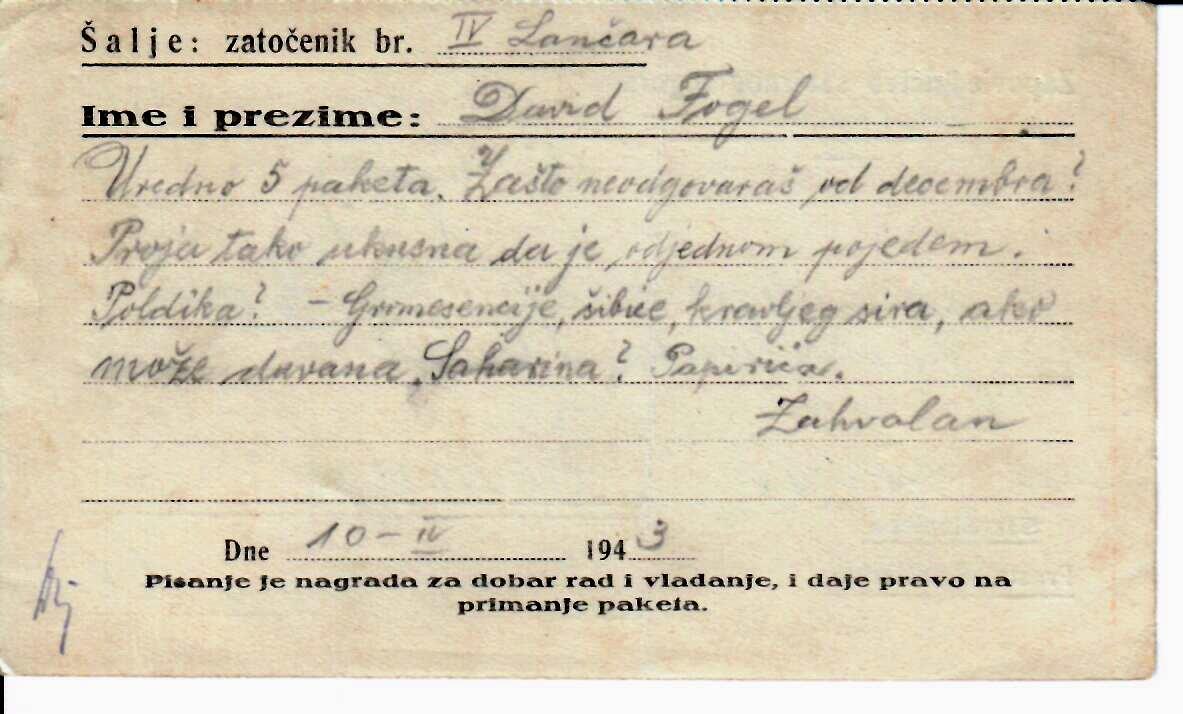 Šalje: zatočenik br. IV Lančara
Ime i prezime: David Fogel
Uredno 5 paketa. Zašto neodgovaraš od decembra?
Proja tako ukusna da je odjednom pojedem.
Poldika? – Grnmesencije, šibice, kravljeg sira, ako
može duvana. Saharina? Papirića.
Zahvalan
Dne 10-IV 1943
Pisanje je nagrada za dobar rad i vladanje, i daje pravo na
primanje paketa.